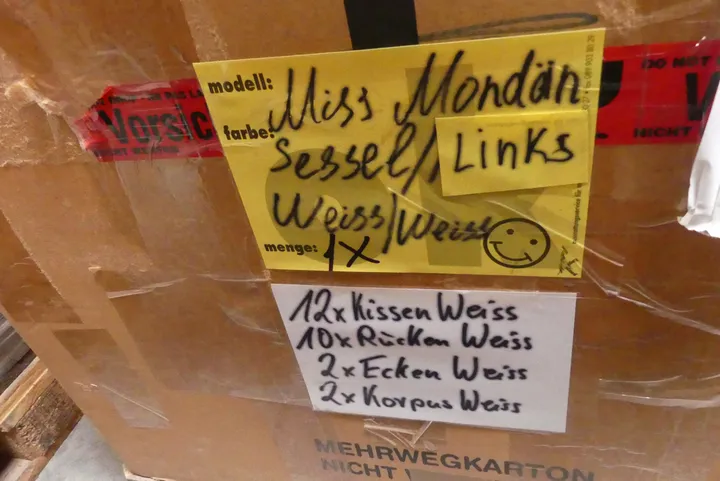 modell: Miss Mondän
farbe: Sessel/Links
Weiss/Weiss
menge: 1x
Vorsic
12x Kissen Weiss
10x Rücken Weiss
2x Ecken Weiss
2x Korpus Weiss
MEHRWEGKARTON
NICHT